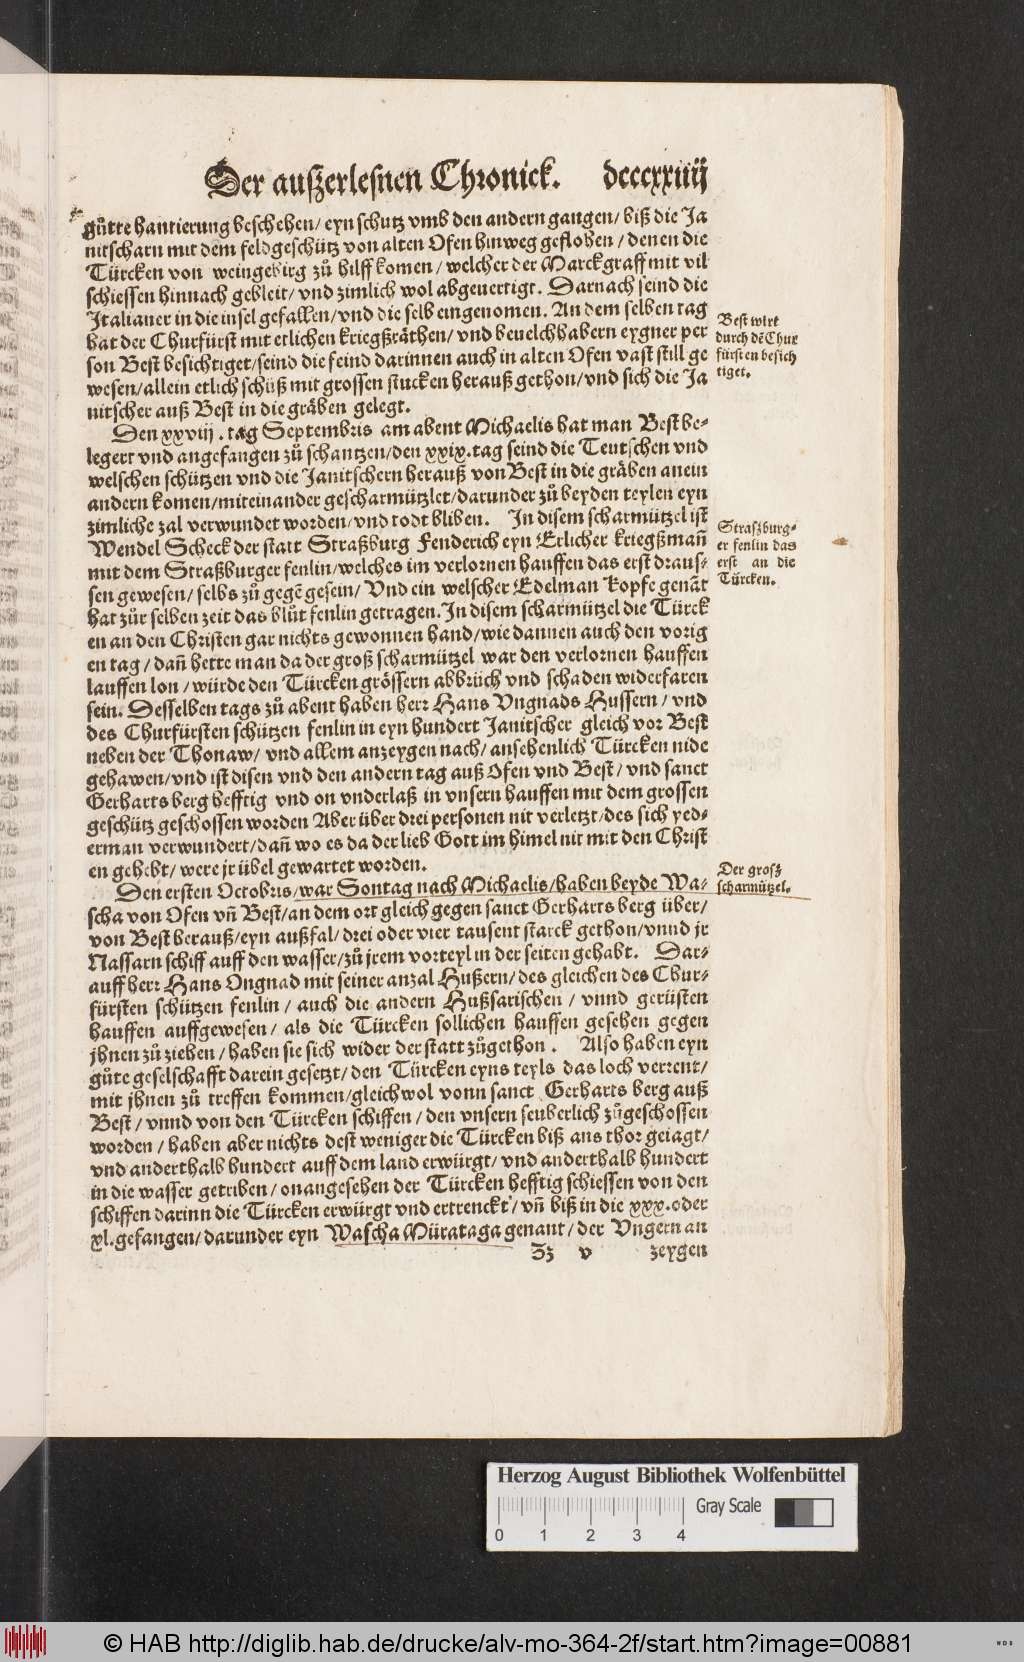 Der außerlesnen Chronick. dccccxxiiij
gůtte hantierung beschehen/ eyn schutz vmb den andern gangen/ biß die Ja
nitscharn mit dem feldgeschütz von alten Ofen hinweg geflohen/ denen die
Türcken von weingebirg zů hilff komen/ welcher der Marckgraff mit vil
schiessen hinnach gebleit/ vnd zimlich wol abgeuertigt. Darnach seind die
Italianer in die insel gefallen/ vnd die selb eingenomen. An dem selben tag
hat der Churfürst mit etlichen kriegßräthen/ vnd beuelchhabern eygner per
son Best besichtiget/ seind die feind darinnen auch in alten Ofen vast still ge
wesen/ allein etlich schüß mit grossen stucken herauß gethon/ vnd sich die Ja
nitscher auß Best in die gräben gelegt.
Best wirt
durch dē Chur
fürsten besich
tiget.
Den xxviij. tag Septembris am abent Michaelis hat man Best be-
legert vnd angefangen zů schantzen/ den xxix. tag seind die Teutschen vnd
welschen schützen vnd die Janitschern herauß von Best in die gräben anein
andern komen/ miteinander gescharmützlet/ darunder zů beyden teylen eyn
zimliche zal verwundet worden/ vnd todt bliben. In disem scharmützel ist
Wendel Scheck der statt Straßburg Fenderich eyn Erlicher kriegßmañ
mit dem Straßburger fenlin/ welches im verlornen hauffen das erst draus-
sen gewesen/ selbs zů gegē gesein/ Vnd ein welscher Edelman Kopfe genāt
hat zůr selben zeit das blůt fenlin getragen. In disem scharmützel die Türck
en an den Christen gar nichts gewonnen hand/ wie dannen auch den vorig
en tag/ dañ hette man da der groß scharmützel war den verlornen hauffen
lauffen lon/ würde den Türcken grössern abbrüch vnd schaden widerfaren
sein. Desselben tags zů abent haben herr Hans Vngnads Hussern/ vnd
des Churfürsten schützen fenlin in eyn hundert Janitscher gleich vor Best
neben der Thonaw/ vnd allem anzeygen nach/ ansehenlich Türcken nide
gehawen/ vnd ist disen vnd den andern tag auß Ofen vnd Best/ vnd sanct
Gerharts berg hefftig vnd on vnderlaß in vnsern hauffen mit dem grossen
geschütz geschossen worden Aber über drei personen nit verletzt/ des sich yed-
erman verwundert/ dañ wo es da der lieb Gott im himel nit mit den Christ
en gehebt/ were jr übel gewartet worden.
Straszburg-
er fenlin das
erst an die
Türcken.
Den ersten Octobris/ war Sontag nach Michaelis/ haben beyde Wa-
scha von Ofen vñ Best/ an dem ort gleich gegen sanct Gerharts berg über/
von Best herauß/ eyn außfal/ drei oder vier tausent starck gethon/ vnnd jr
Nassarn schiff auff den wasser/ zů jrem vorteyl in der seiten gehabt. Dar-
auff herr Hans Ongnad mit seiner anzal Hußern/ des gleichen des Chur-
fürsten schützen fenlin/ auch die andern Hußsarischen/ vnnd gerüsten
hauffen auffgewesen/ als die Türcken sollichen hauffen gesehen gegen
jhnen zů ziehen/ haben sie sich wider der statt zůgethon. Also haben eyn
gůte geselschafft darein gesetzt/ den Türcken eyns teyls das loch verrent/
mit jhnen zů treffen kommen/ gleichwol vonn sanct Gerharts berg auß
Best/ vnnd von den Türcken schiffen/ den vnsern seuberlich zůgeschossen
worden/ haben aber nichts dest weniger die Türcken biß ans thor geiagt/
vnd anderthalb hundert auff dem land erwürgt/ vnd anderthalb hundert
in die wasser getriben/ onangesehen der Türcken hefftig schiessen von den
schiffen darinn die Türcken erwürgt vnd ertrenckt/ vñ biß in die xxx. oder
xl. gefangen/ darunder eyn Wascha Mürataga genant/ der Vngern an
Der grosz
scharmützel.
Zz v zeygen
Herzog August Bibliothek Wolfenbüttel
Gray Scale
0 1 2 3 4
© HAB http://diglib.hab.de/drucke/alv-mo-364-2f/start.htm?image=00881